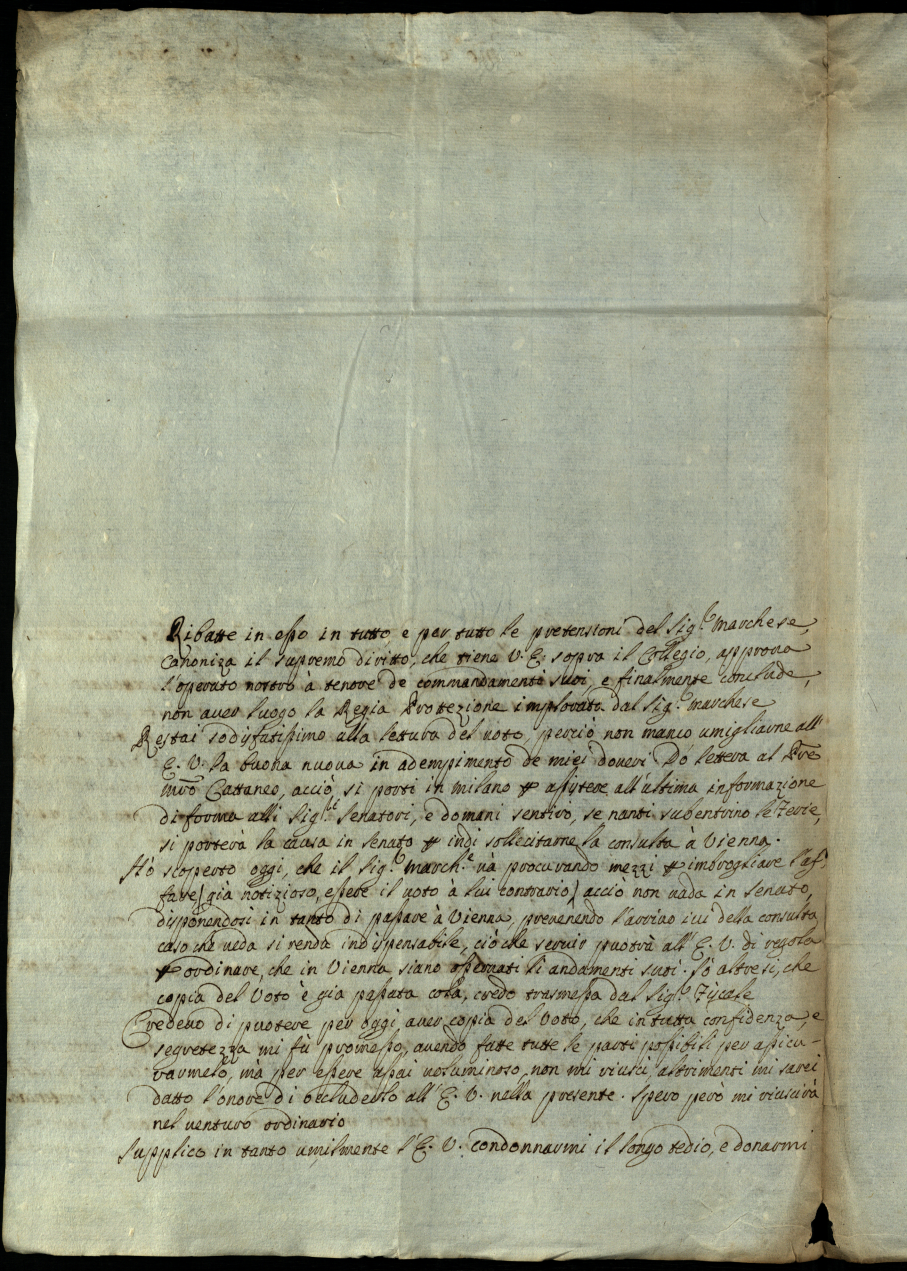 Ribatte in esso in tutto e per tutto le pretensioni del Sig.e Marchese,
Canoniza il supremo diritto, che tiene V. E. sopra il Collegio, approva
l'operato nostro à tenore de commandamenti suoi, e finalmente conclude,
non aver luogo la Regia Protezione implorata dal Sig.e Marchese
Restai sodisfatissimo alla lettura del voto, perciò non manco umigliarne all'
E. V. la buona nuova in adempimento de miei doveri. Dò lettera al
Cattaneo, acciò si porti in Milano assistere all'ultima informazione
di forma alli Sig.ri Senatori, e domani sentirò, se nanti subentrino le Ferie,
si porterà la causa in Senato indi sollecitarne la consulta à Vienna.
Hò scoperto oggi, che il Sig.e March.e và procurando mezzi imbrogliare l'af-
fare (già notizioso, essere il voto à lui contrario) acciò non vada in Senato,
disponendosi in tanto di passare à Vienna, prevenendo l'arrivo ivi della consulta
caso che veda si renda indispensabile, ciò che servir puotrà all'E. V. di regola
ordinare, che in Vienna siano osservati li andamenti suoi. Sò altresi, che
copia del Voto è gia passata colà, credo trasmessa dal Sig.e Fiscale
Credevo di puotere per oggi aver copia del Votto, che in tutta confidenza, e
segretezza mi fù promesso, avendo fatte tutte le parti possibili per assicu-
rarmelo, mà per essere assai voluminoso, non mi riuscì altrimenti mi sarei
datto l'onore di occluderlo all'E. V. nella presente. Spero però mi riuscirà
nel venturo ordinario
Supplico in tanto umilmente l'E. V. condonnarmi il longo tedio, e donarmi